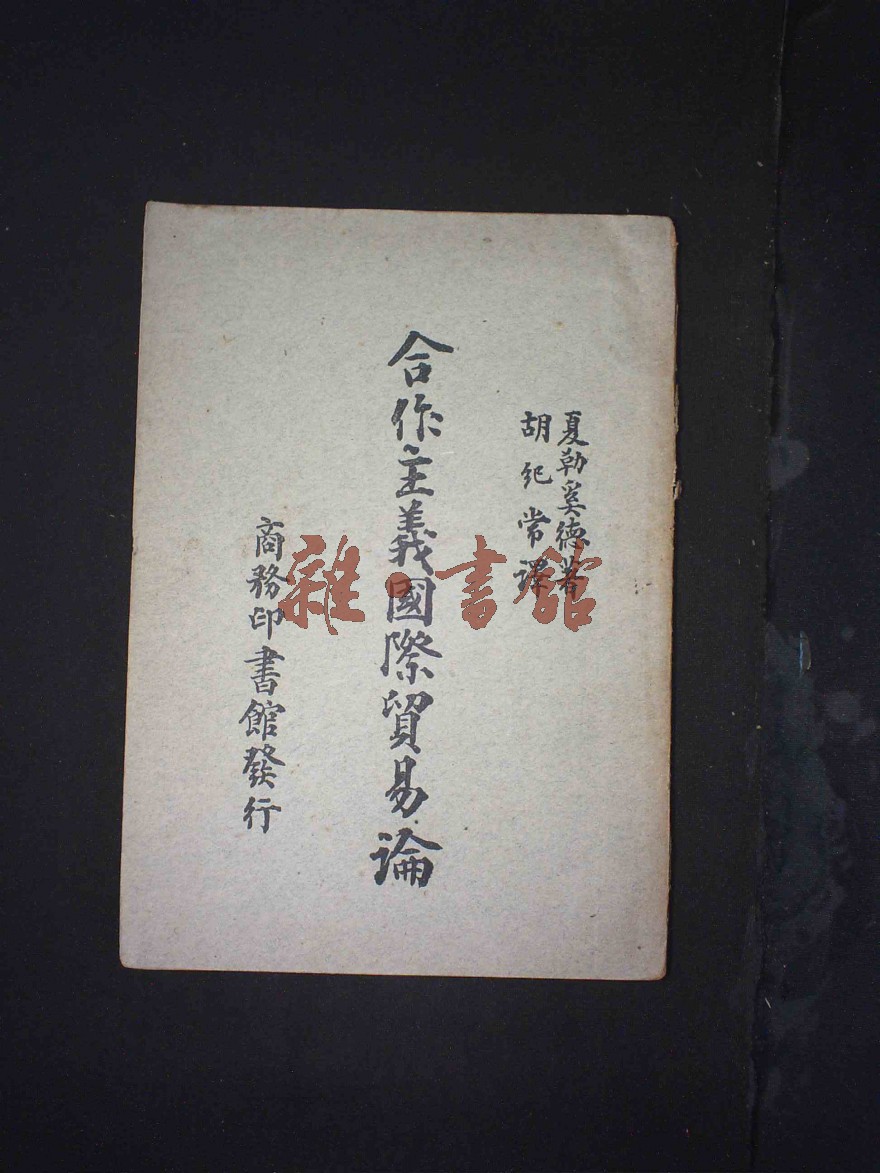 夏勒奚德著
胡紀常譯
合作主義國際貿易論
商務印書館發行
雜·書館